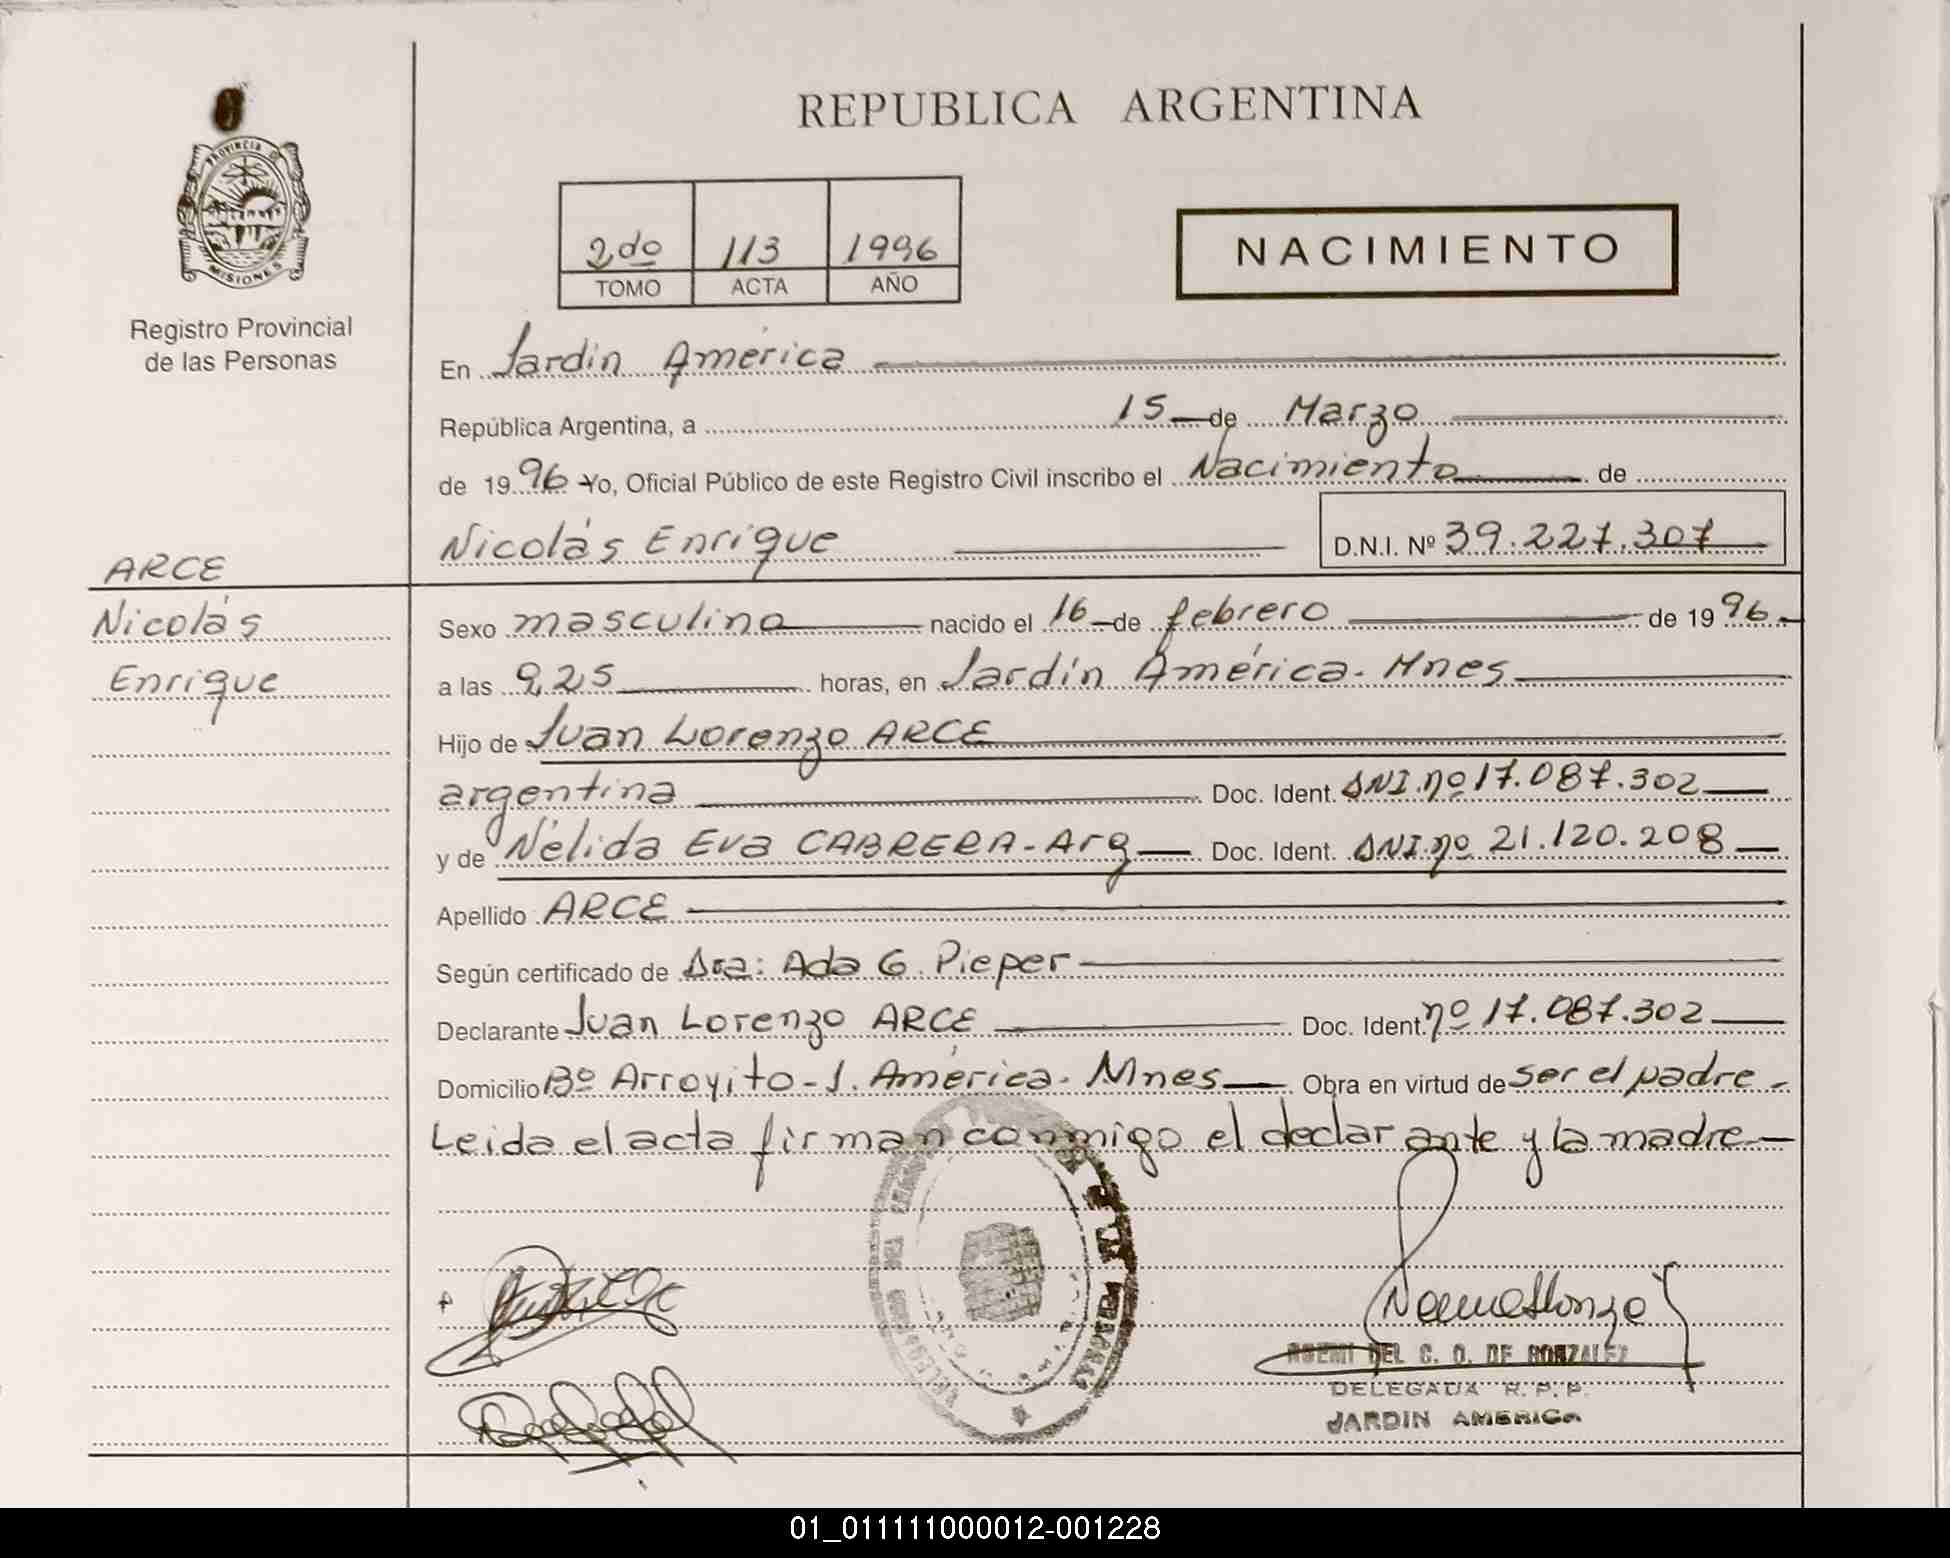 REPUBLICA ARGENTINA
PROVINCIA DE
MISIONES
Registro Provincial
de las Personas
2do 113 1996
TOMO ACTA AÑO
NACIMIENTO
En Jardín América
República Argentina, a 15 de Marzo
de 1996 Yo, Oficial Público de este Registro Civil inscribo el Nacimiento de
Nicolás Enrique D.N.I. Nº 39.227.307
ARCE
Nicolás
Enrique
Sexo masculino nacido el 16 de febrero de 1996
a las 9,25 horas, en Jardín América. Mnes
Hijo de Juan Lorenzo ARCE
argentina Doc. Ident. DNI.nº 17.087.302
y de Nélida Eva CABRERA - Arg Doc. Ident. DNI.nº 21.120.208
Apellido ARCE
Según certificado de Dra: Ada G. Pieper
Declarante Juan Lorenzo ARCE Doc. Ident. nº 17.087.302
Domicilio Bº Arroyito - J. América. Mnes Obra en virtud de ser el padre
Leida el acta firman conmigo el declarante y la madre
NOEMI DEL C. O. DE GONZALEZ
DELEGADA R.P.P.
JARDIN AMERICA
01_011111000012-001228